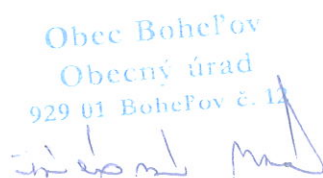 Obec Boheľov
Obecný úrad
929 01 Boheľov č. 12